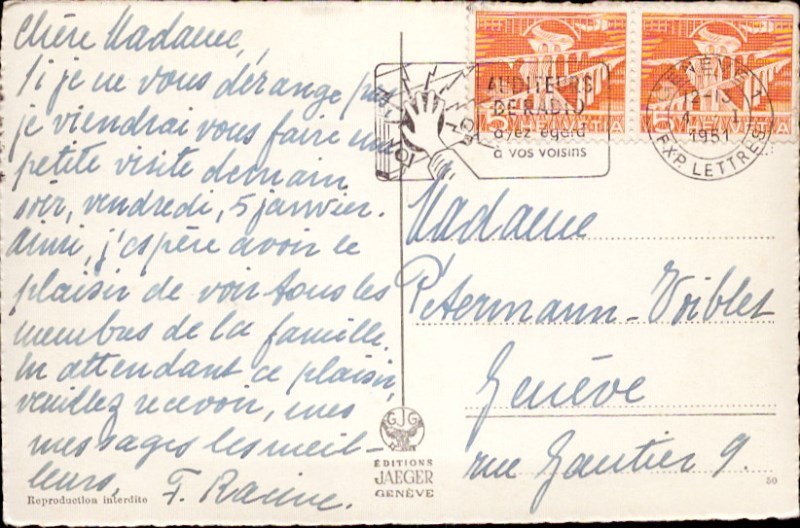 Chère Madame,
Si je ne vous dérange pas
je viendrai vous faire une
petite visite demain
soir, vendredi, 5 janvier.
Ainsi, j'espère avoir le
plaisir de voir tous les
membres de la famille.
En attendant ce plaisir,
veuillez recevoir, mes
messages les meil-
leurs. F. Racine.
Reproduction interdite
AUDITEURS
DE RADIO
ayez égard
à vos voisins
5 HELVETIA
5 HELVETIA
GENÈVE 1
1951
EXP. LETTRES
Madame
Petermann-Voiblet
Genève
rue Gautier 9.
ÉDITIONS
JAEGER
GENÈVE
50